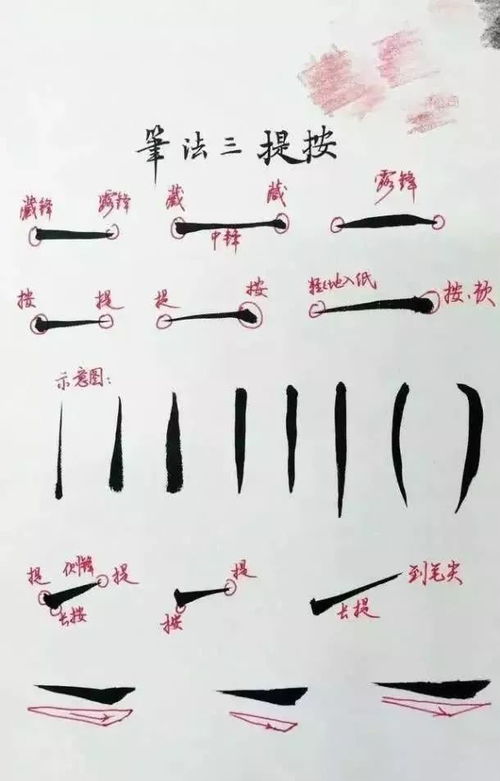 筆法三提按
藏锋 露锋 藏 藏 露锋
中锋
按 提 提 按 轻轻地入纸 按、顿
示意图:
提 侧锋 提 提 到笔尖
长按 按 长提